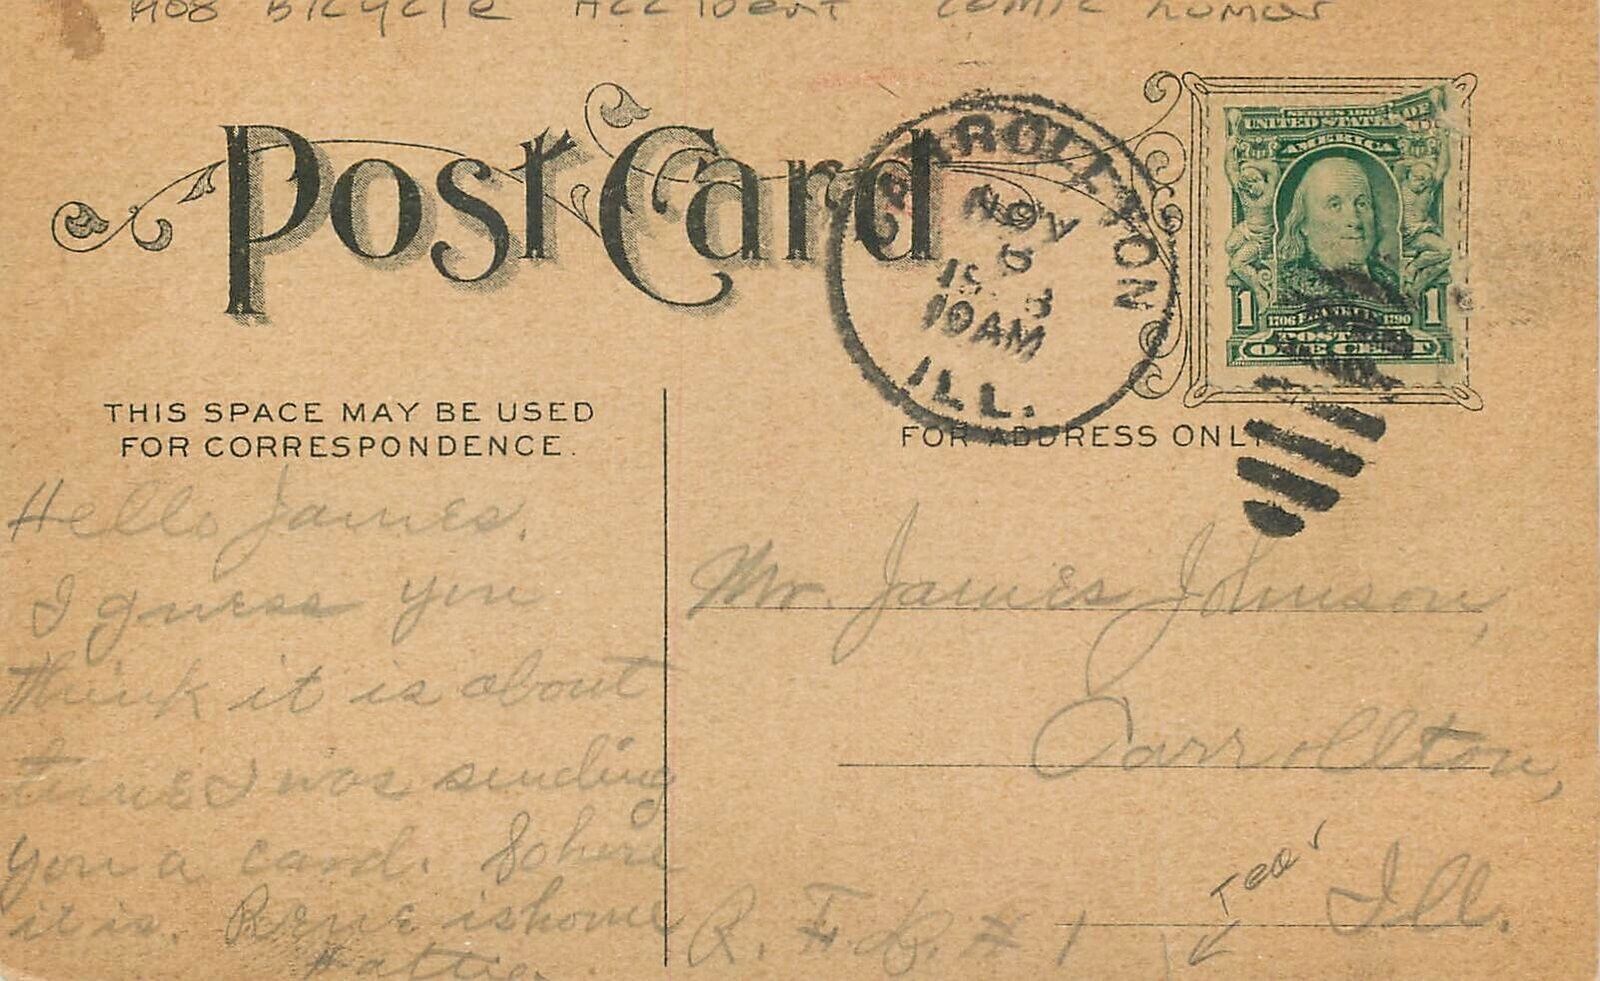 1908 BICYCLE ACCIDENT COMIC HUMOR
Post Card
CARROLLTON
NOV
1908
10 AM
ILL.
SERIES 1902
UNITED STATES OF
AMERICA
1 1706 FRANKLIN 1790 1
POSTAGE
ONE CENT
THIS SPACE MAY BE USED
FOR CORRESPONDENCE.
FOR ADDRESS ONLY
Hello James.
I guess you
think it is about
time I was sending
you a card. So here
it is. Rene is home
Hattie.
Mr. James Johnson,
Carrollton,
Ill.
R. F. D. # 1
Tear